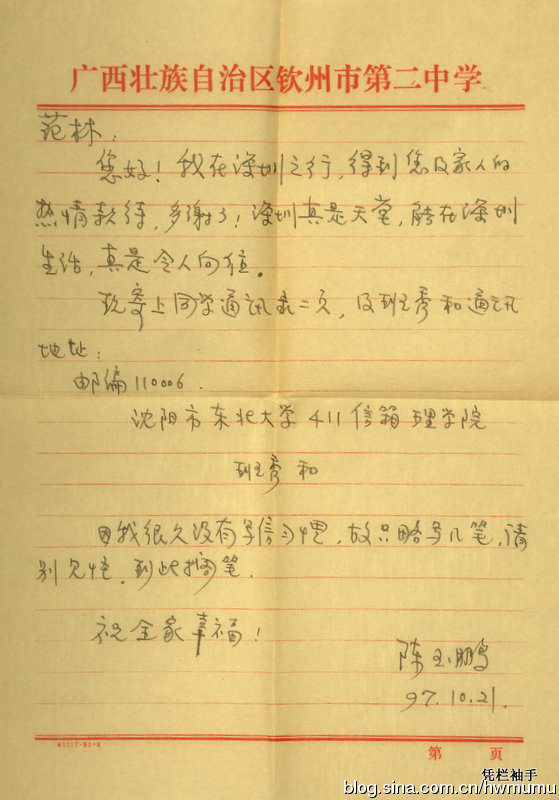 广西壮族自治区钦州市第二中学
范林：
您好！我在深圳之行，得到您及家人的
热情款待，多谢了！深圳真是天堂，能在深圳
生活，真是令人向往。
现寄上同学通讯录二页，及班秀和通讯
地址：
邮编110006.
沈阳市东北大学411信箱理学院
班秀和
因我很久没有写信习惯，故只略写几笔，请
别见怪。到此搁笔.
祝全家幸福！
陈玉鹏
97.10.21.
45317-91-4
第 页
凭栏袖手
blog.sina.com.cn/hwmumu